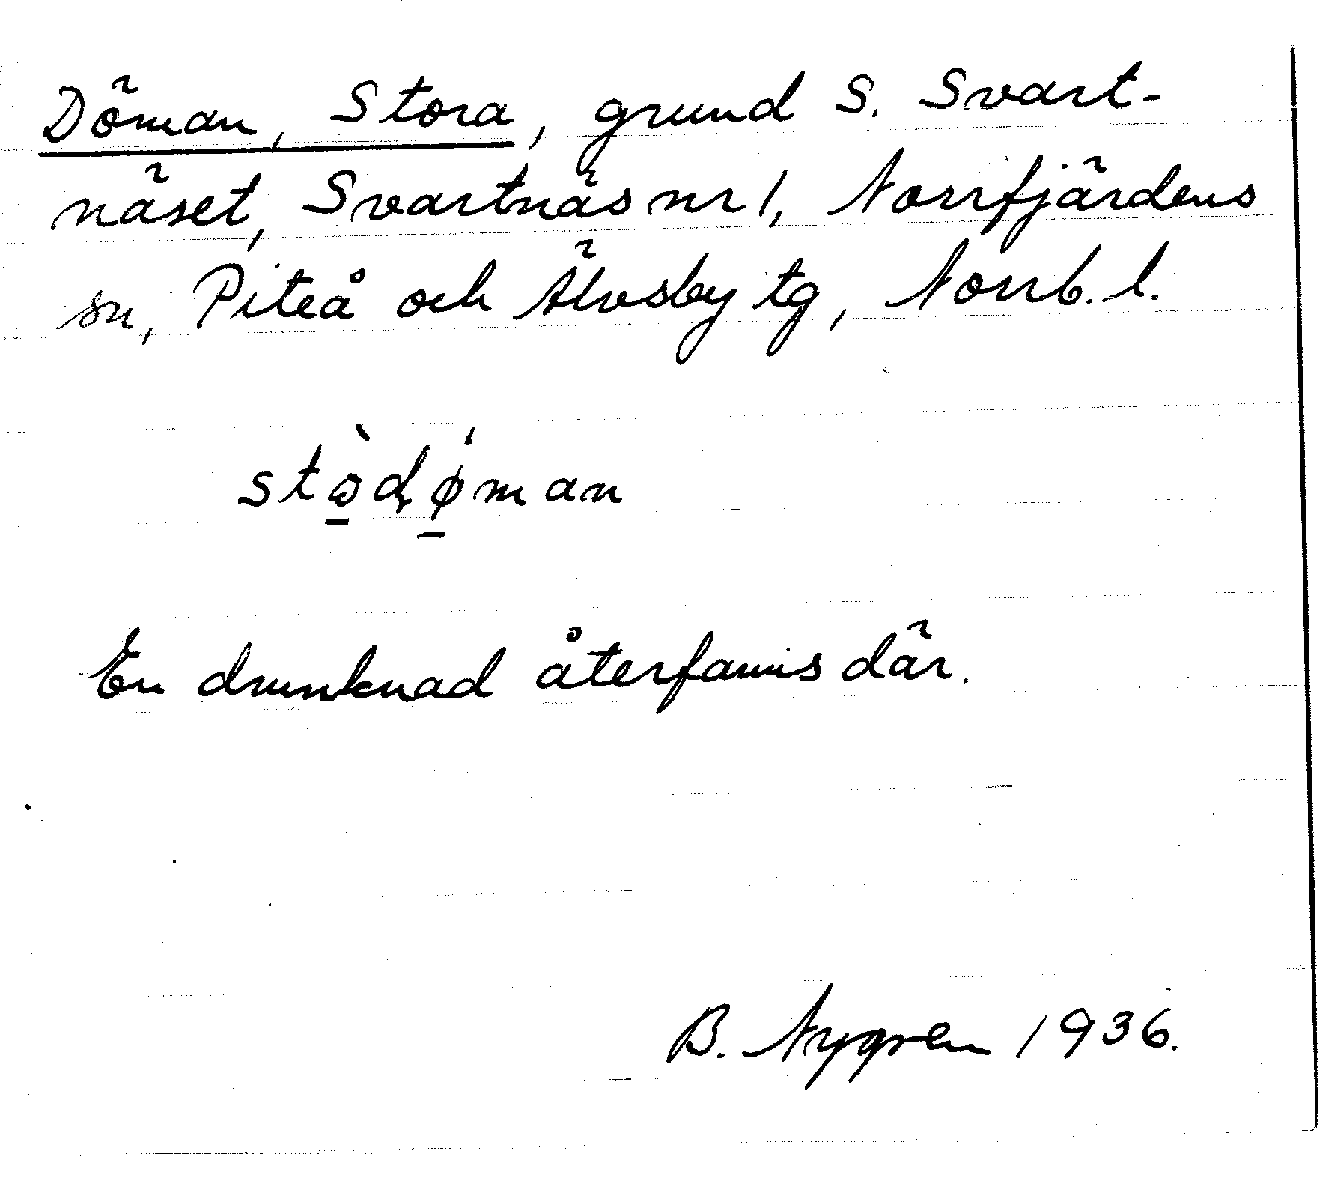 Döman, Stora, grund S. Svart-
näset, Svartnäs nr 1, Norrfjärdens
sn, Piteå och Älvsby tg, Norrb. l.
stò̱dǿ̱man
En drunknad återfanns där.
B. Nygren 1936.